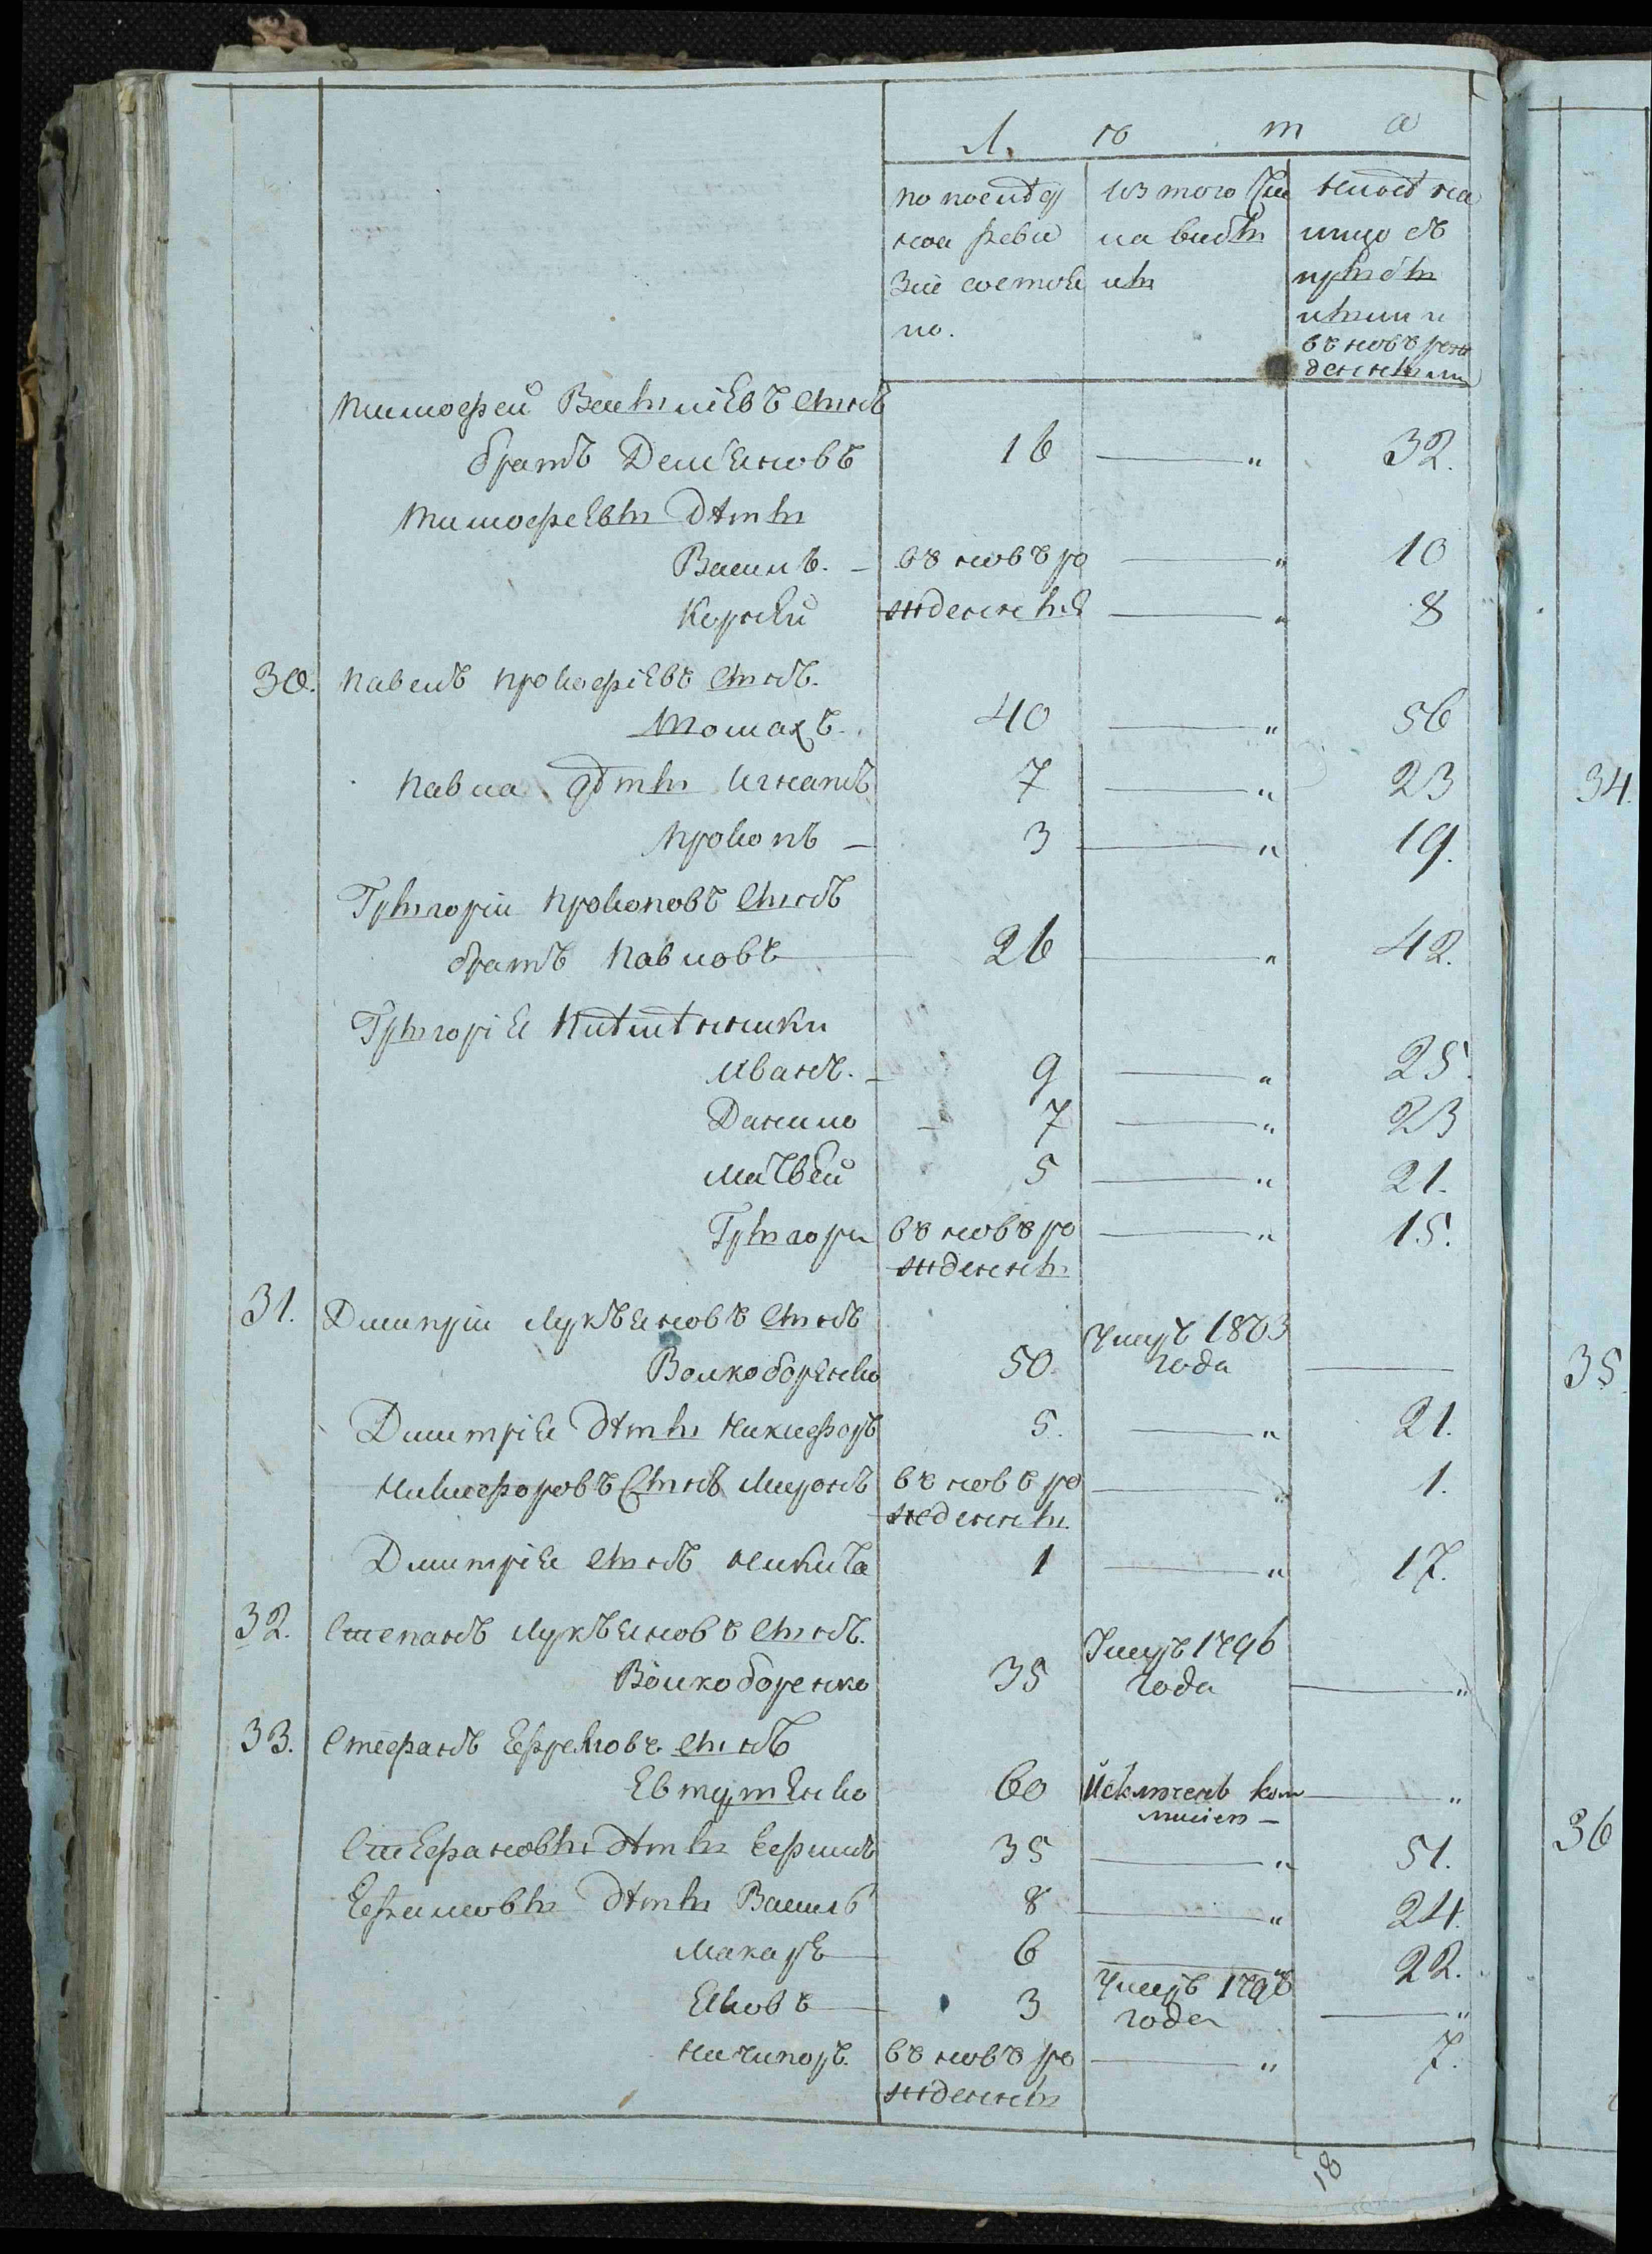 Лѣта
по последней ревизіе состояло.
из того числа выбыло
ныне на лицо съ прибылыми и въ новъ рожденными
Тимофей Василиевъ сынъ
братъ Демяновъ 16 — " 32.
Тимофеевы дѣти
Василь. — въ новъ ро — " 10
Корней жденные — " 8
30. Павелъ Прокофіевъ сынъ.
Томахъ. 40 — " 56
Павла дѣти Игнатъ 7 — " 23
Прокопъ — 3 — " 19.
Григорій Прокоповъ сынъ
братъ Павловъ — 26 — " 42.
Григорія племенники
Иванъ. — 9 — " 25.
Данило — 7 — " 23
Матвей 5 — " 21.
Григори въ новъ ро — " 15.
жденны
31. Дмитрій Лукъяновъ сынъ
Волкоборенко 50. Умеръ 1803 года —
Дмитрія дѣти Никифоръ 5. — " 21.
Никифоровъ сынъ Миронъ въ новъ ро — " 1.
жденны.
Дмитрія сынъ Никита 1 — " 17.
32. Степанъ Лукъяновъ сынъ.
Волкоборенко 35 Умеръ 1796 года — "
33. Стефанъ Ефремовъ сынъ
Евтушенко 60 Исключенъ коммисіею — — "
Стефановы дѣти Ефимъ 35 — " 51.
Ефимовы дѣти Василь 8 — " 24.
Макаръ — 6 — " 22.
Яковъ — 3 Умеръ 1798 года — "
Ничипоръ. въ новъ ро — " 7.
жденны
18
34.
35.
36